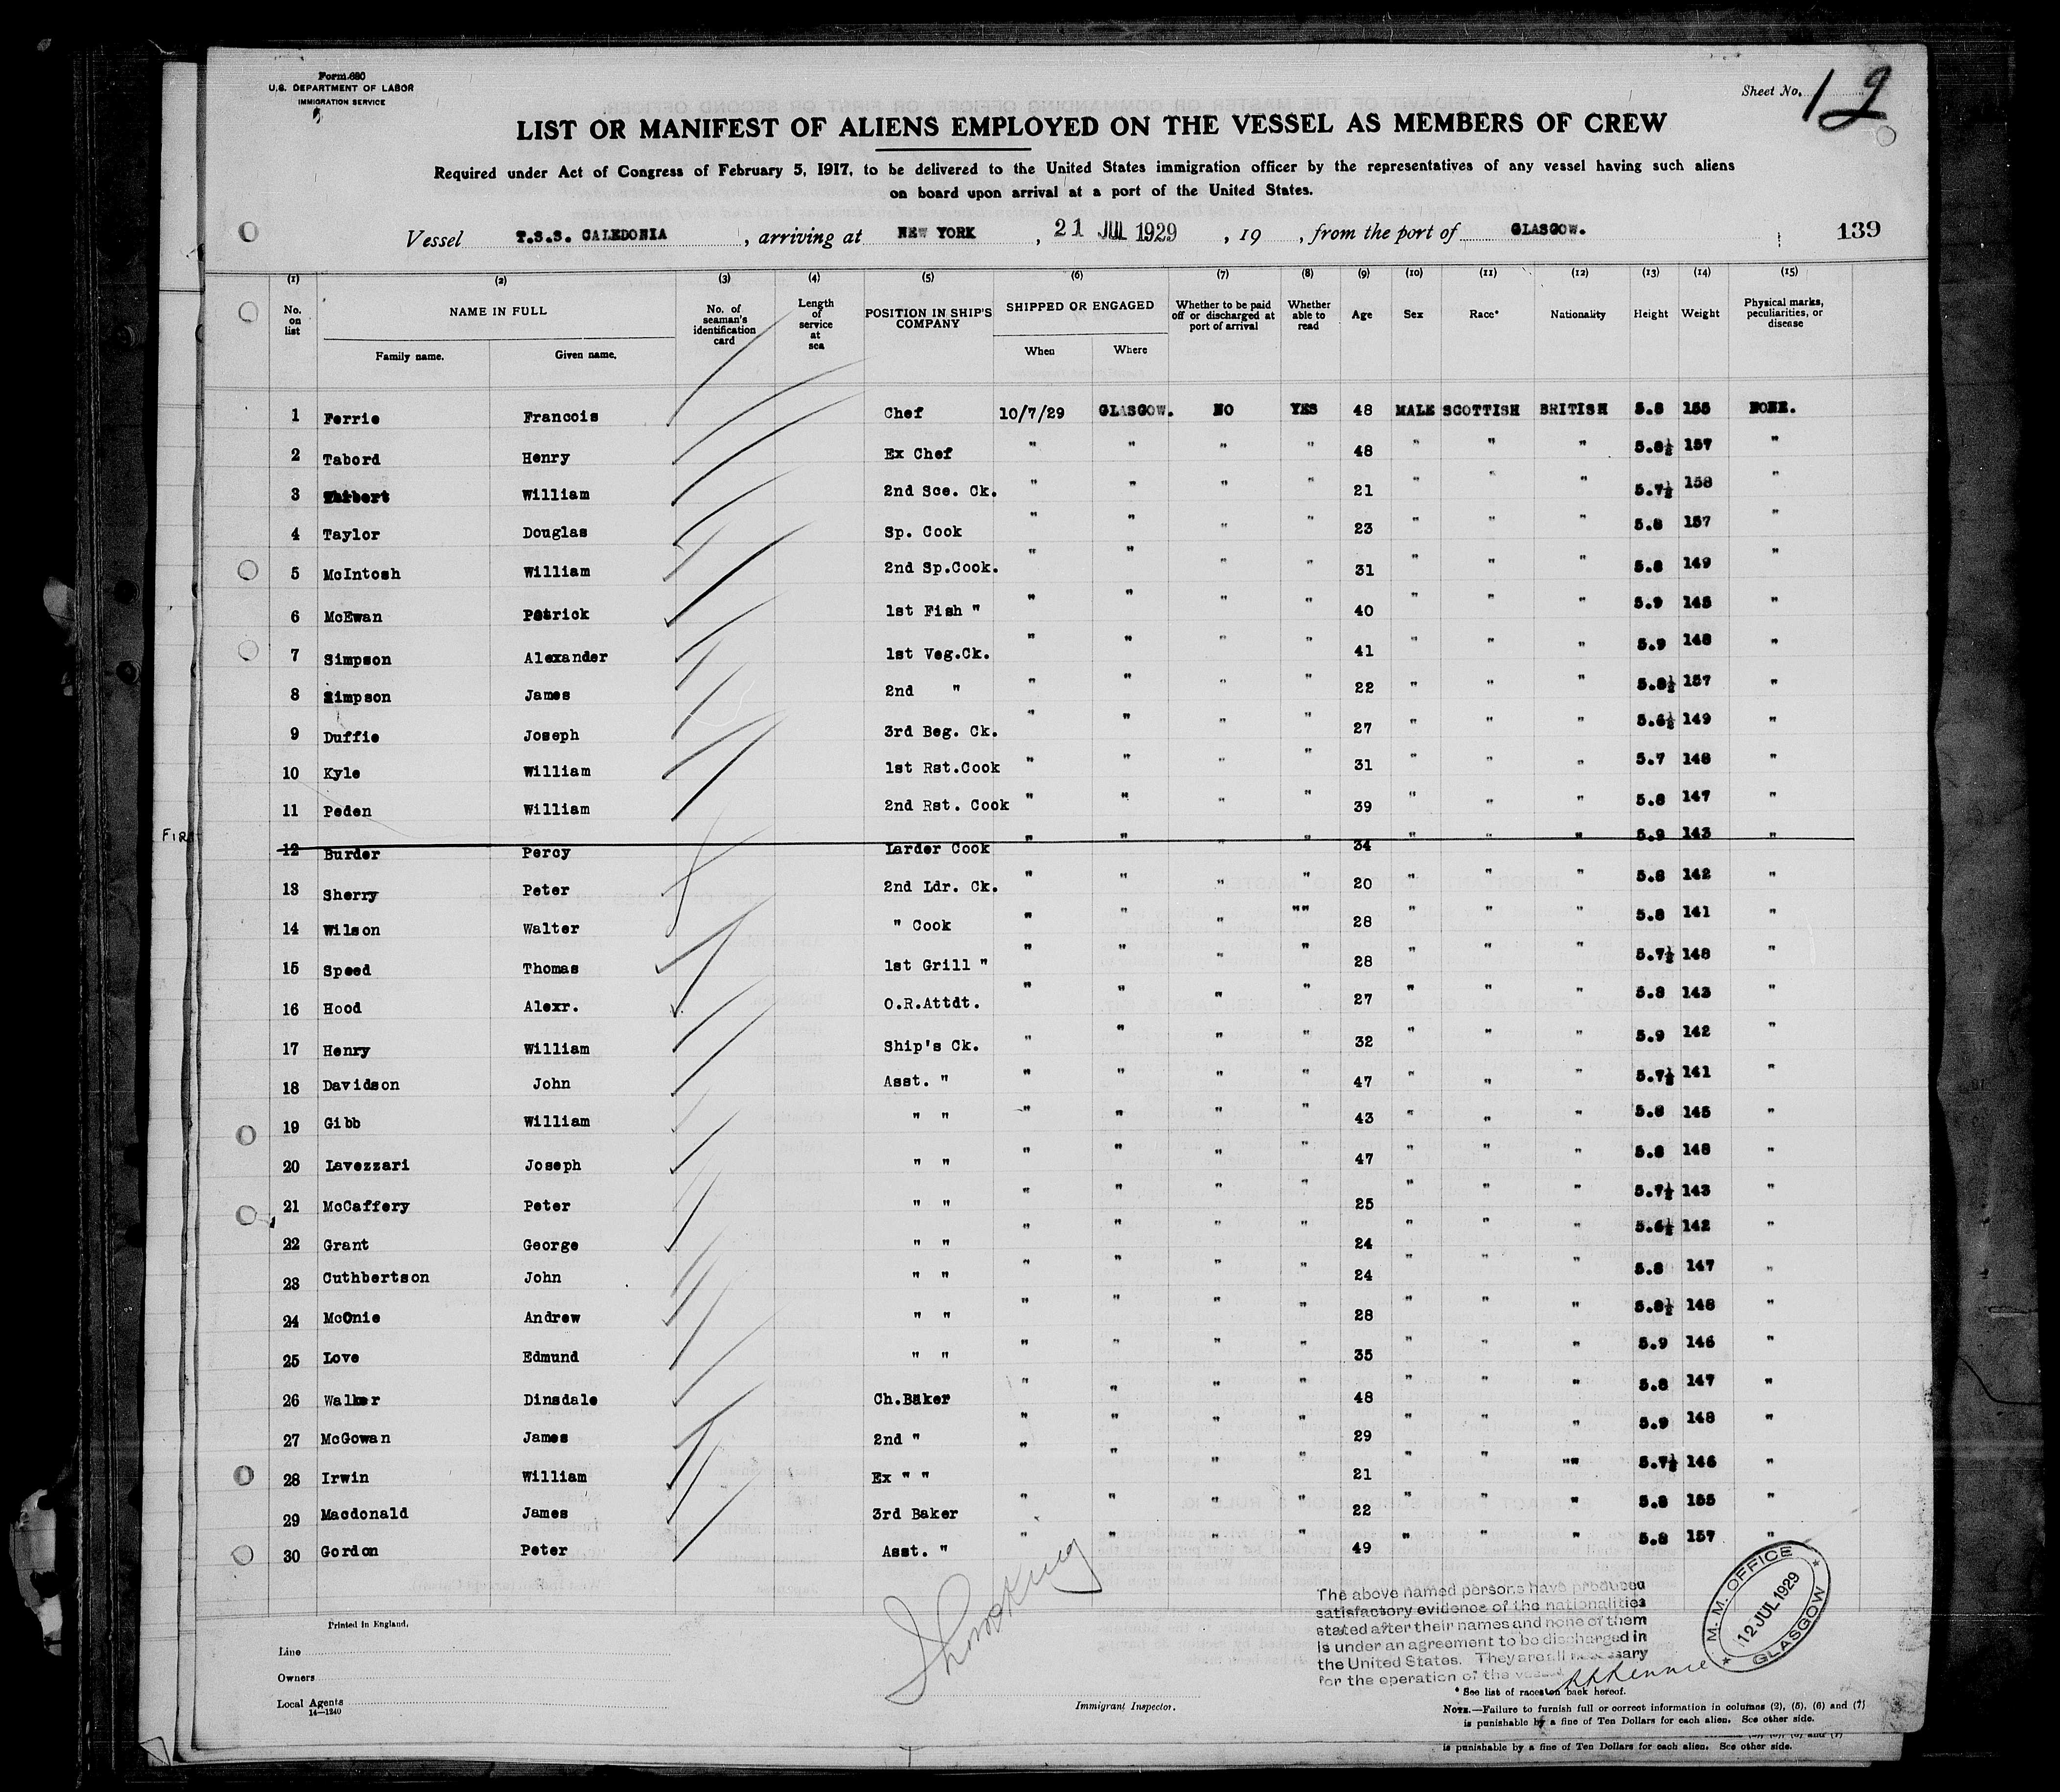 Form 680
U.S. DEPARTMENT OF LABOR
IMMIGRATION SERVICE
Sheet No. 12
LIST OR MANIFEST OF ALIENS EMPLOYED ON THE VESSEL AS MEMBERS OF CREW
Required under Act of Congress of February 5, 1917, to be delivered to the United States immigration officer by the representatives of any vessel having such aliens
on board upon arrival at a port of the United States.
Vessel T.S.S. CALEDONIA , arriving at NEW YORK , 21 JUL 1929 , 19 , from the port of GLASGOW. 139
(1) (2) (3) (4) (5) (6) (7) (8) (9) (10) (11) (12) (13) (14) (15)
No. on list NAME IN FULL Family name. Given name. No. of seaman's identification card Length of service at sea POSITION IN SHIP'S COMPANY SHIPPED OR ENGAGED When Where Whether to be paid off or discharged at port of arrival Whether able to read Age Sex Race* Nationality Height Weight Physical marks, peculiarities, or disease
1 Ferrie Francois Chef 10/7/29 GLASGOW. NO YES 48 MALE SCOTTISH BRITISH 5.8 155 NONE.
2 Tabord Henry Ex Chef " " " " 48 " " " 5.8½ 157 "
3 William 2nd Sce. Ck. " " " " 21 " " " 5.7½ 158 "
4 Taylor Douglas Sp. Cook " " " " 23 " " " 5.8 157 "
5 McIntosh William 2nd Sp.Cook. " " " " 31 " " " 5.8 149 "
6 McEwan Patrick 1st Fish " " " " " 40 " " " 5.9 145 "
7 Simpson Alexander 1st Veg.Ck. " " " " 41 " " " 5.9 148 "
8 Simpson James 2nd " " " " " 22 " " " 5.8½ 157 "
9 Duffie Joseph 3rd Beg. Ck. " " " " 27 " " " 5.6½ 149 "
10 Kyle William 1st Rst.Cook " " " " 31 " " " 5.7 148 "
11 Peden William 2nd Rst. Cook " " " " 39 " " " 5.8 147 "
12 Burder Percy Larder Cook " " " " 34 " " " 5.9 143 "
FIR
13 Sherry Peter 2nd Ldr. Ck. " " " " 20 " " " 5.8 142 "
14 Wilson Walter " Cook " " " "" 28 " " " 5.8 141 "
15 Speed Thomas 1st Grill " " " " " 28 " " " 5.7½ 148 "
16 Hood Alexr. O.R.Attdt. " " " " 27 " " " 5.8 143 "
17 Henry William Ship's Ck. " " " " 32 " " " 5.9 142 "
18 Davidson John Asst. " " " " " 47 " " " 5.7½ 141 "
19 Gibb William " " " " " " 43 " " " 5.8 145 "
20 Lavezzari Joseph " " " " " " 47 " " " 5.8 148 "
21 McCaffery Peter " " " " " " 25 " " " 5.7½ 143 "
22 Grant George " " " " " " 24 " " " 5.6½ 142 "
23 Cuthbertson John " " " " " " 24 " " " 5.8 147 "
24 McOnie Andrew " " " " " " 28 " " " 5.8½ 148 "
25 Love Edmund " " " " " " 35 " " " 5.9 146 "
26 Walker Dinsdale Ch.Baker " " " " 48 " " " 5.8 147 "
27 McGowan James 2nd " " " " " 29 " " " 5.9 148 "
28 Irwin William Ex " " " " " " 21 " " "" 5.7½ 146 "
29 Macdonald James 3rd Baker " " " " 22 " " " 5.8 155 "
30 Gordon Peter Asst. " " " " " 49 " " " 5.8 157 "
The above named persons have produced
satisfactory evidence of the nationalities
stated after their names and none of them
is under an agreement to be discharged in
the United States. They are all necessary
for the operation of the vessel.
M. M. OFFICE
12 JUL 1929
GLASGOW
Printed in England.
Line
Owners
Local Agents
14—1240
Immigrant Inspector.
* See list of races on back hereof.
NOTE.—Failure to furnish full or correct information in columns (2), (5), (6) and (7)
is punishable by a fine of Ten Dollars for each alien. See other side.
is punishable by a fine of Ten Dollars for each alien. See other side.